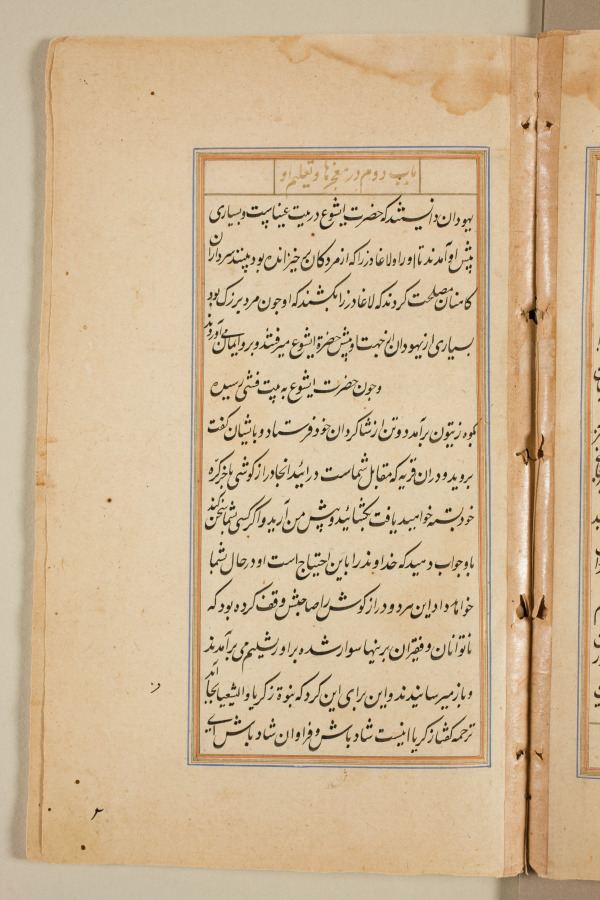 باب دوم در معجزها و تعلیم او
یهودان دانستند که حضرت ایشوع در بیت عیناست و بسیاری
پیش او آمدند تا او را و لاغادز را که از مردکان برخیزانده بود ببینند سرداران
کاهنان مصلحت کردند که لاغادز را بکشند که او چون مرد بزرک بود
بسیاری از یهودان از جهت او پیش حضرة ایشوع میرفتند و برو ایمان می آوردند
و چون حضرت ایشوع به بیت فشی رسیده
بکوه زیتون برآمد دو تن از شاکردان خود فرستاد و بایشان کفت
بروید و در ان قریه که مقابل شماست درایید انجا دراز کوشی با خرکره
خود بسته خواهید یافت بکشائید و پیش من آرید و اکر کسی شما سخن کند
باو جواب دهید که خداوند را باین احتیاج است او در حال شما
خواهد داد این هر دو دراز کوش را صاحبش وقف کرده بود که
ناتوانان و فقیران برینها سوار شده براورشلیم می برآمدند
و باز میرسانیدند و این برای این کرد که نبوة زکریا و الیشعیا بجا آید
ترجمه کفتار زکریا اینست شاد باش و فراوان شاد باش ای
۲